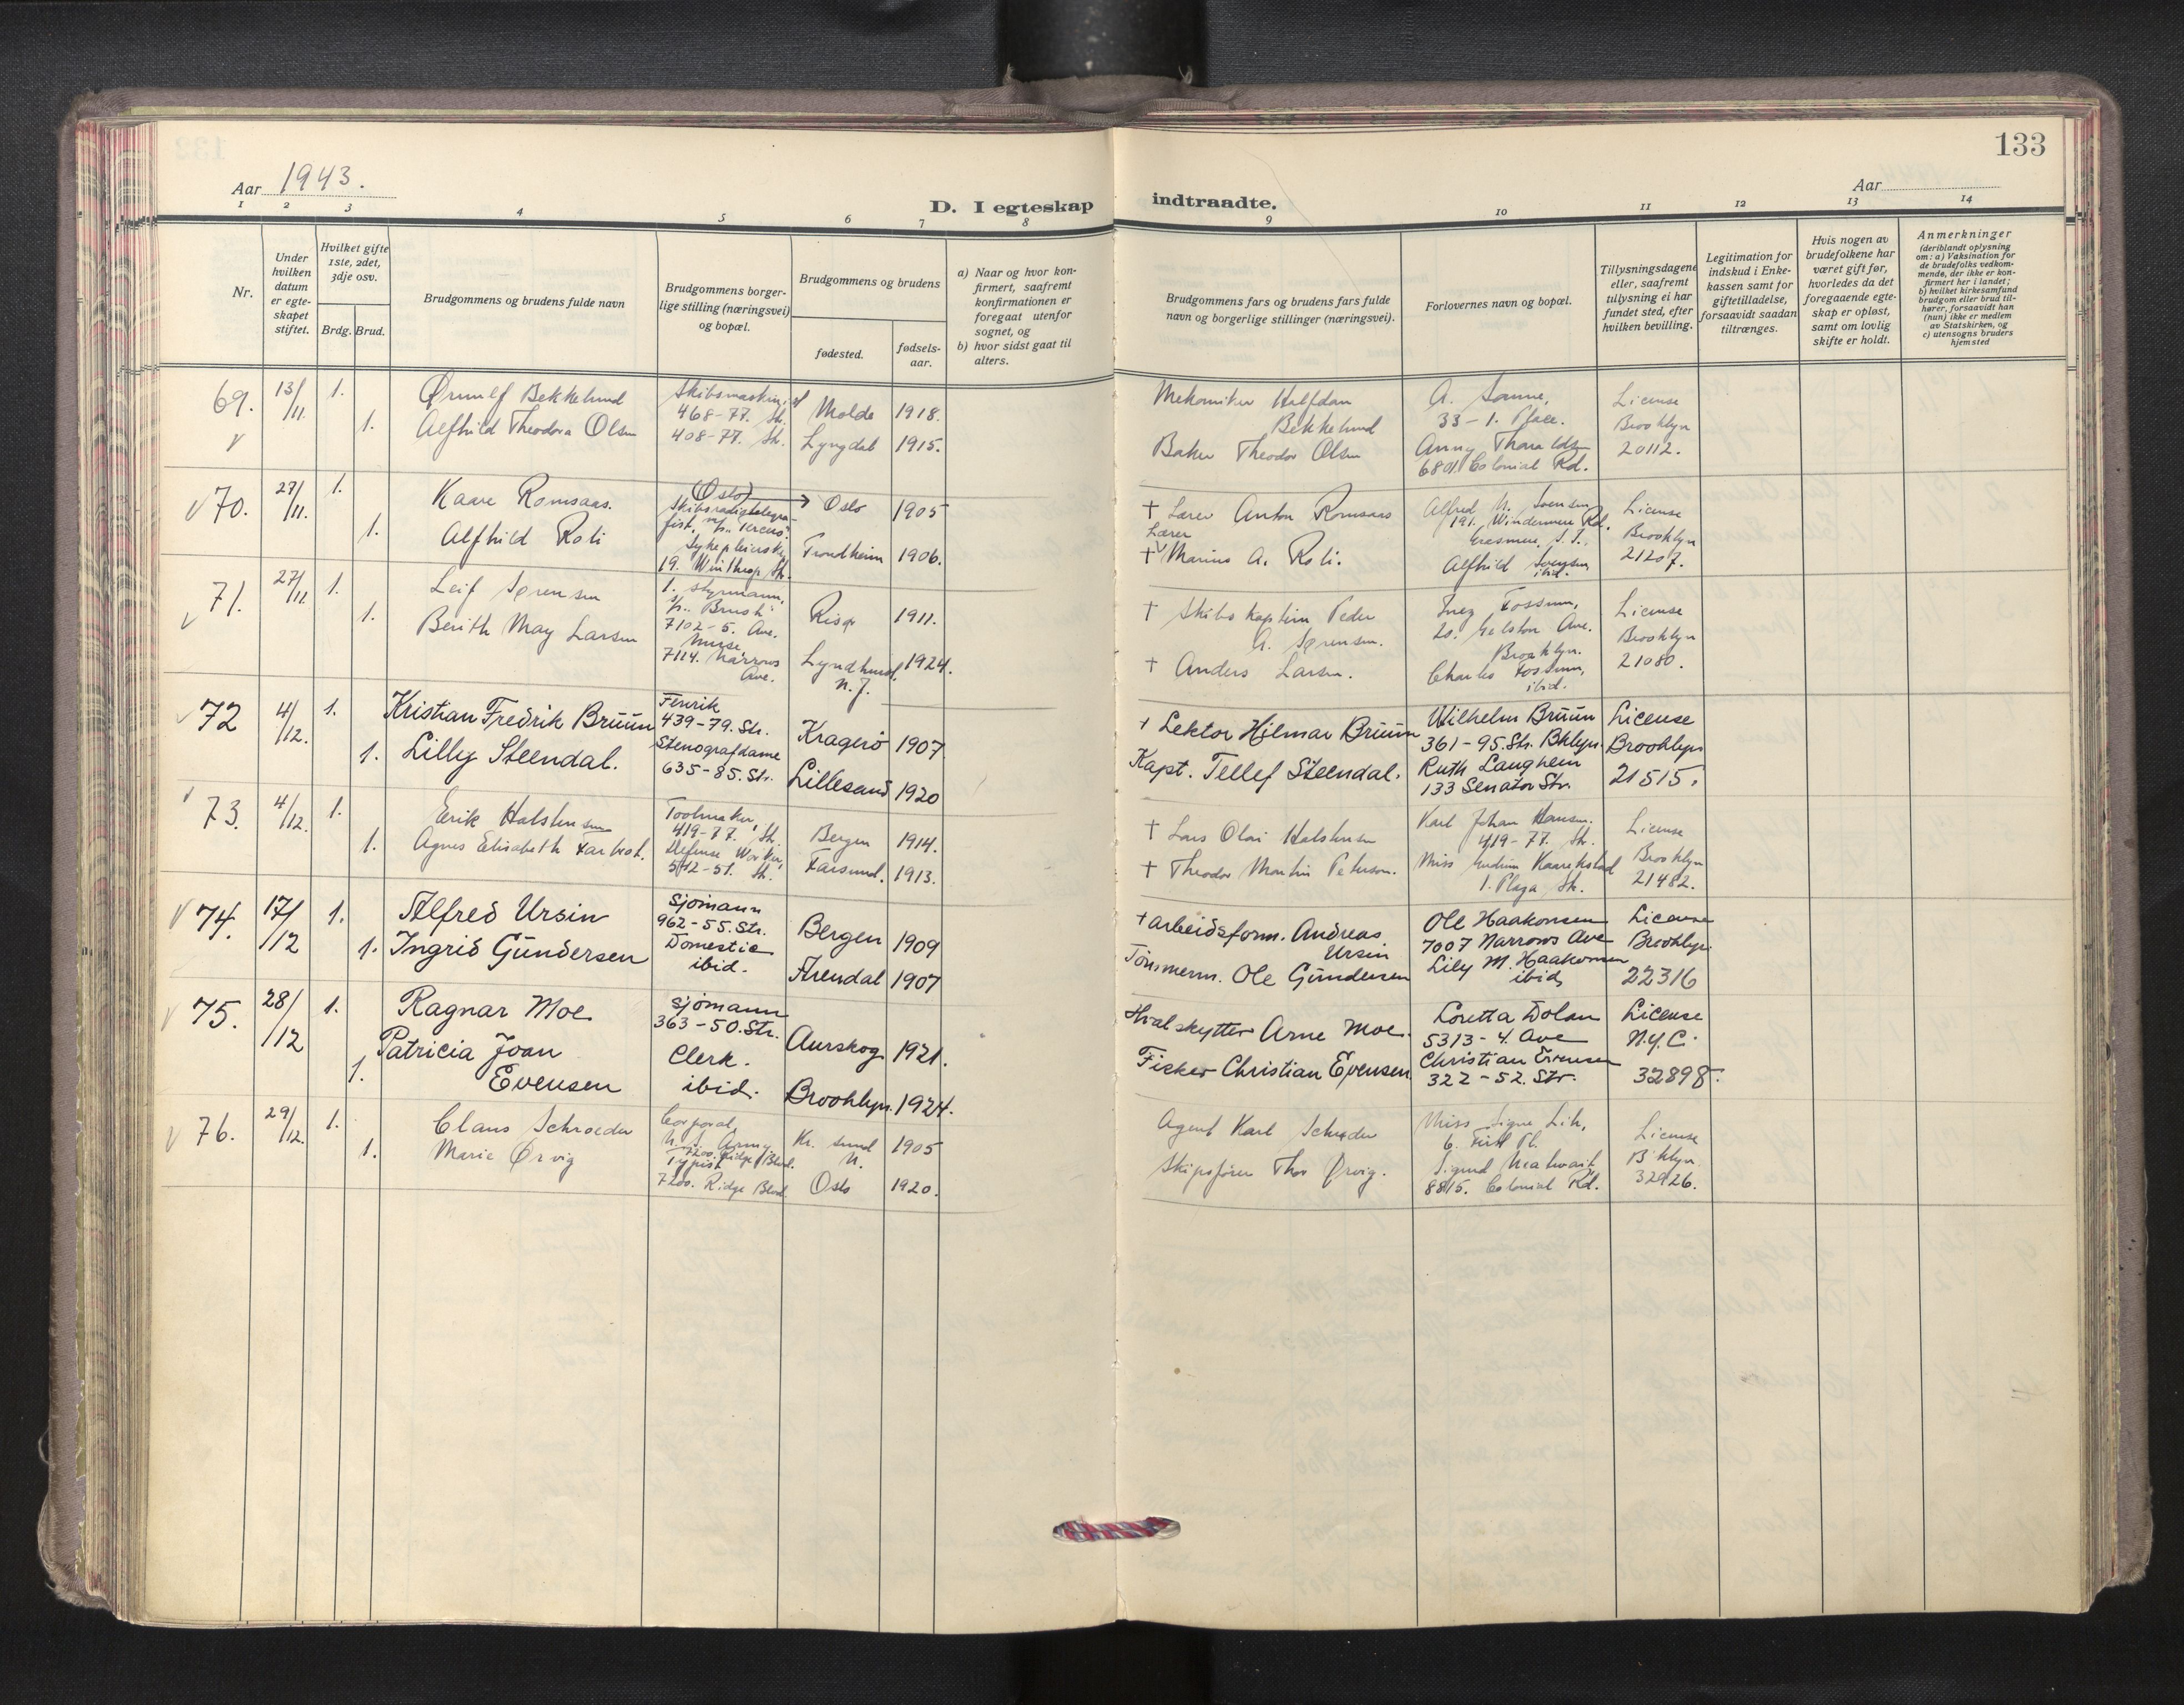 133
Aar 1943.
Aar
D. I egteskap indtraadte.
1 2 3 4 5 6 7 8 9 10 11 12 13 14
Nr.
Under hvilken datum er egte-skapet stiftet.
Hvilket gifte 1ste, 2det, 3dje osv.
Brdg. Brud.
Brudgommens og brudens fulde navn
Brudgommens borger-lige stilling (næringsvei) og bopæl.
Brudgommens og brudens
fødested.
fødsels-aar.
a) Naar og hvor kon-firmert, saafremt konfirmationen er foregaat utenfor sognet, og
b) hvor sidst gaat til alters.
Brudgommens fars og brudens fars fulde navn og borgerlige stillinger (næringsvei).
Forlovernes navn og bopæl.
Tillysningsdagene eller, saafremt tillysning ei har fundet sted, efter hvilken bevilling.
Legitimation for indskud i Enke-kassen samt for giftetilladelse, forsaavidt saadan tiltrænges.
Hvis nogen av brudefolkene har været gift før, hvorledes da det foregaaende egte-skap er opløst, samt om lovlig skifte er holdt.
Anmerkninger
(deriblandt oplysning om: a) Vaksination for de brudefolks vedkom-mende, der ikke er kon-firmert her i landet; b) hvilket kirkesamfund brudgom eller brud til-hører, forsaavidt han (nun) ikke er medlem av Statskirken, og c) utensogns bruders hjemsted
69. 13/11. 1. Ørnulf Bekkelund
468-77. St. Molde 1918.
Mekaniker Halfdan Bekkelund
A. Sonne,
33-1. Place.
License Brooklyn 20112.
1. Alfhild Theodora Olsen
408-77. St. Lyngdal 1915.
Baker Theodor Olsen
Anny Tharaldsen
6801 Colonial Rd.
70. 27/11. 1. Kaare Romsaas.
(Oslo)
Skibsradiotelegra-
fist,
Oslo 1905
† Lærer Anton Romsaas
Alfred N. Svensen
191. Windermere Rd.
Grasmere, S.I.
License Brooklyn 21207.
1. Alfhild Roli
Sykepleierske
19. Winthrop St.
Trondheim 1906.
Lærer
† Marius A. Roli.
Alfhild Svensen
ibid.
71. 27/11. 1. Leif Sørensen
1. styrmann,
7102-5. Ave.
Risør 1911.
† Skibskaptein Peder
A. Sørensen.
Inez Fossum,
20. Gelston Ave.
Brooklyn.
License Brooklyn 21080.
1. Berith May Larsen
Nurse
7114. Narrows
Ave.
Lyndhurst, N.J. 1924.
† Anders Larsen.
Charles Fossum,
ibid.
72 4/12. 1. Kristian Fredrik Bruun
Fenrik
439-79. Str.
Kragerö 1907
† Lektor Hilmar Bruun
Wilhelm Bruun
361-95. Str. Bklyn.
License Brooklyn 21515.
1. Lilly Steendal.
Stenografdame
635-85. Str.
Lillesand 1920
Kapt. Tellef Steendal.
Ruth Laughein
133 Senator Str.
73. 4/12. 1. Erik Halstensen
Toolmaker,
419-77. St.
Bergen 1914.
† Lars Olai Halstensen
Karl Johan Hansen.
419-77. St.
License Brooklyn 21482.
1. Agnes Elisabeth Farbrot.
Defense Worker,
542-51. St.
Farsund. 1913.
† Theodor Martin Peterson.
Miss Gudrun Kaarekstad
1. Plaza St.
74. 17/12 1. Alfred Ursin
Sjømann
962-55. Str.
Bergen 1909
† arbeidsform. Andreas
Ursin
Ole Haakonsen
7007 Narrows Ave
License Brooklyn. 22316
1. Ingrid Gundersen
Domestic
ibid.
Arendal 1907
Tömmerm. Ole Gundersen
Lily M. Haakonsen
ibid,
75. 28/12 1. Ragnar Moe
Sjømann
363-50. Str.
Aurskog 1921.
Hvalskytter Arne Moe.
Loretta Dolan
5313-4. Ave
License N.Y.C. 32898.
1. Patricia Joan
Evensen
Clerk.
ibid.
Brooklyn. 1924.
Fisker Christian Evensen
Christian Evensen
322-52. Str.
76. 29/12. 1. Claus Schroeder
Corporal,
U.S. Army
7200. Ridge Blvd.
Kr. sund N. 1905
Agent Karl Schrøder
Miss Signe Lih,
6. First Pl.
License B'klyn. 32926.
1. Marie Ørvig
Typist
7200. Ridge Blvd.
Oslo 1920.
Skipsfører Thor Ørvig.
8815. Colonial Rd.